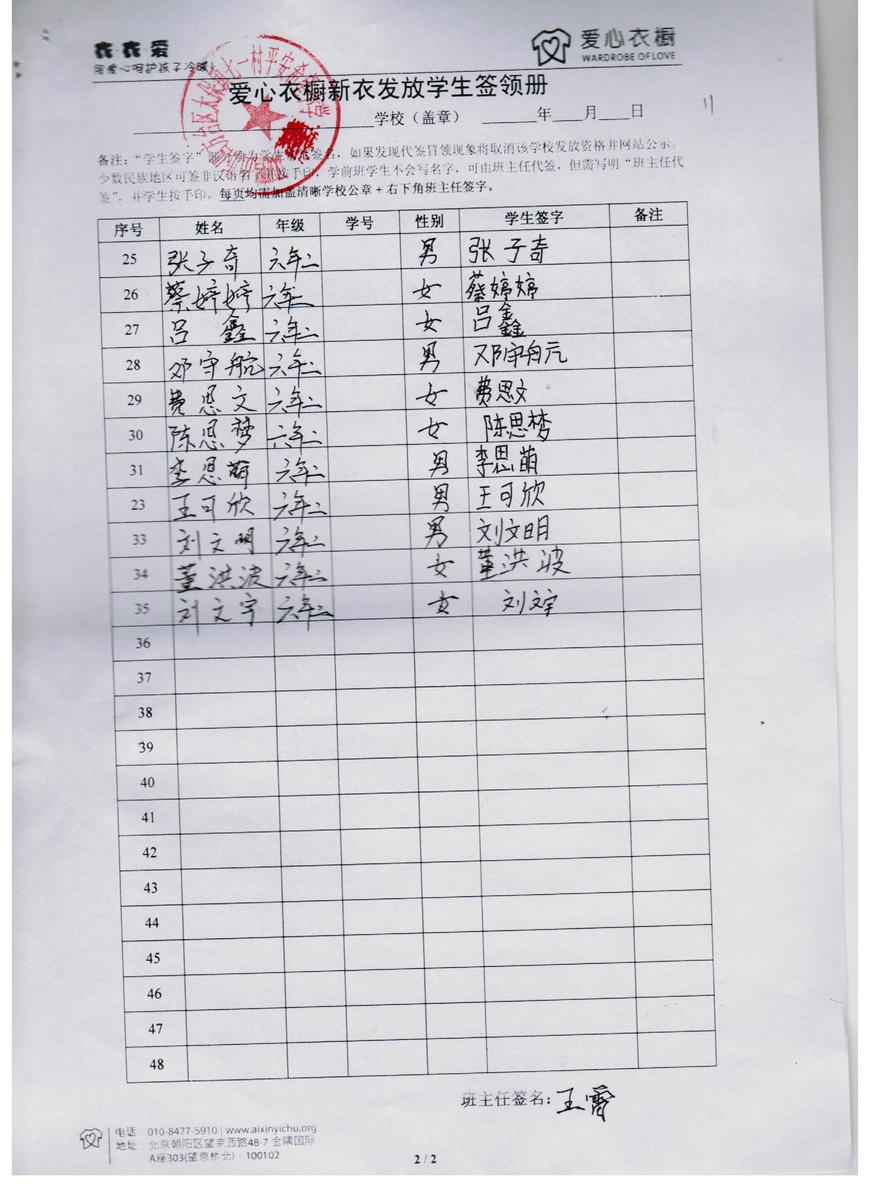 垚垚爱
用爱心呵护孩子冷暖!
爱心衣橱
WARDROBE OF LOVE
爱心衣橱新衣发放学生签领册
学校（盖章） 年 月 日
备注：“学生签字” 签名，如果发现代签冒领现象将取消该学校发放资格并网站公示。
少数民族地区可签非汉语名字并按手印。学前班学生不会写名字，可由班主任代签，但需写明“班主任代
签”，并学生按手印。每页均需加盖清晰学校公章+右下角班主任签字。
序号 姓名 年级 学号 性别 学生签字 备注
25 张子奇 六年二 男 张子奇
26 蔡婷婷 六年二 女 蔡婷婷
27 吕鑫 六年二 女 吕鑫
28 邓宇航 六年二 男 邓宇航
29 费思文 六年二 女 费思文
30 陈思梦 六年二 女 陈思梦
31 李思萌 六年二 男 李思萌
23 王可欣 六年二 男 王可欣
33 刘文明 六年二 男 刘文明
34 董洪波 六年二 女 董洪波
35 刘文宇 六年二 女 刘文宇
36
37
38
39
40
41
42
43
44
45
46
47
48
班主任签名：王霄
电话：010-8477-5910 | www.aixinyichu.org
地址：北京朝阳区望京西路48-7 金隅国际
A座303(望京桥北) · 100102
2 / 2